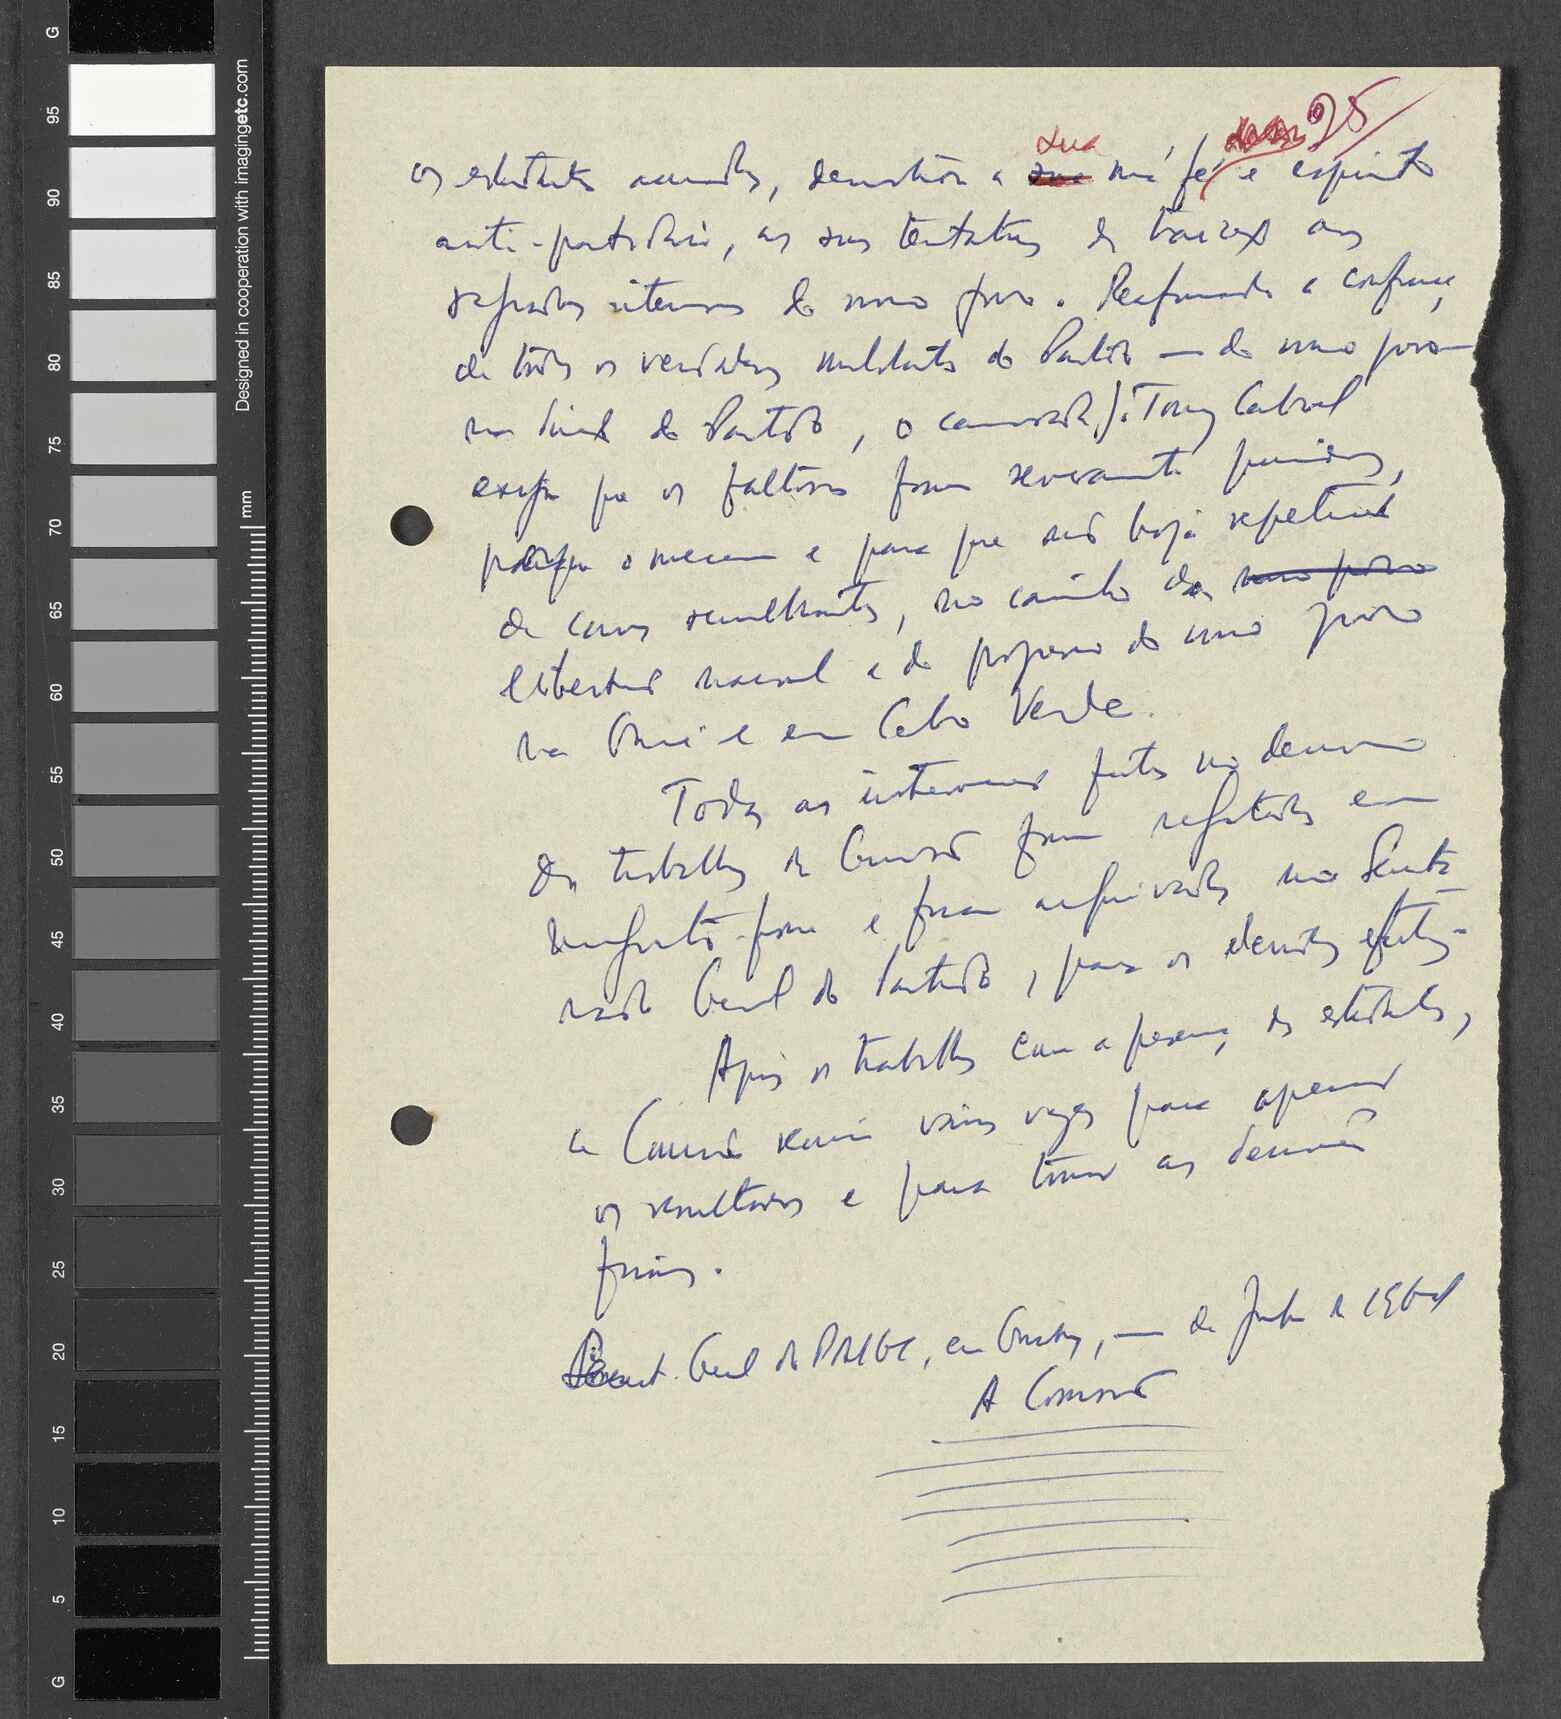 G
95
90
85
80
75
70
65
60
55
50
45
40
35
30
25
20
15
10
5
G
Designed in cooperation with imagingetc.com
mm
25
sua
os estudantes acusados, demonstrou a sua má fé e espírito
anti-partidário, as suas tentativas de traição aos
interesses do nosso povo. Reafirmando a confiança
de todos os verdadeiros militantes do Partido — do nosso povo —
na Direcção do Partido, o camarada Tony Cabral
exigiu que os faltosos fossem severamente punidos,
porque o merecem e para que não haja repetição
de casos semelhantes, no caminho da nosso povo
libertação nacional e do progresso do nosso povo
na Guiné e em Cabo Verde.
Todas as intervenções feitas no decurso
dos trabalhos da Comissão foram registadas em
magnetofone e foram arquivadas no Secreta-
riado Geral do Partido, para os devidos efeitos.
Após os trabalhos com a presença dos estudantes,
a Comissão reuniu várias vezes para apreciar
os resultados e para tomar as decisões
finais.
Secret. Geral do PAIGC, em Conakry, — de de 196
A Comissão